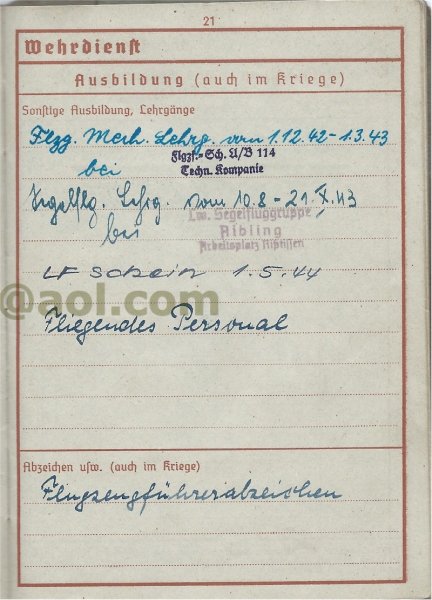 21
Wehrdienst
Ausbildung (auch im Kriege)
Sonstige Ausbildung, Lehrgänge
Flzg. Mech. Lehrg. vom 1.12.42-1.3.43
bei
Flgzf.-Sch. A/B 114
Techn. Kompanie
Segelflg. Lehrg. vom 10.8-21.X.43
bei
Lw. Segelfluggruppe
Aibling
Arbeitsplatz Rißtissen
LF Schein 1.5.44
@aol.com
Fliegendes Personal
Abzeichen usw. (auch im Kriege)
Flugzeugführerabzeichen